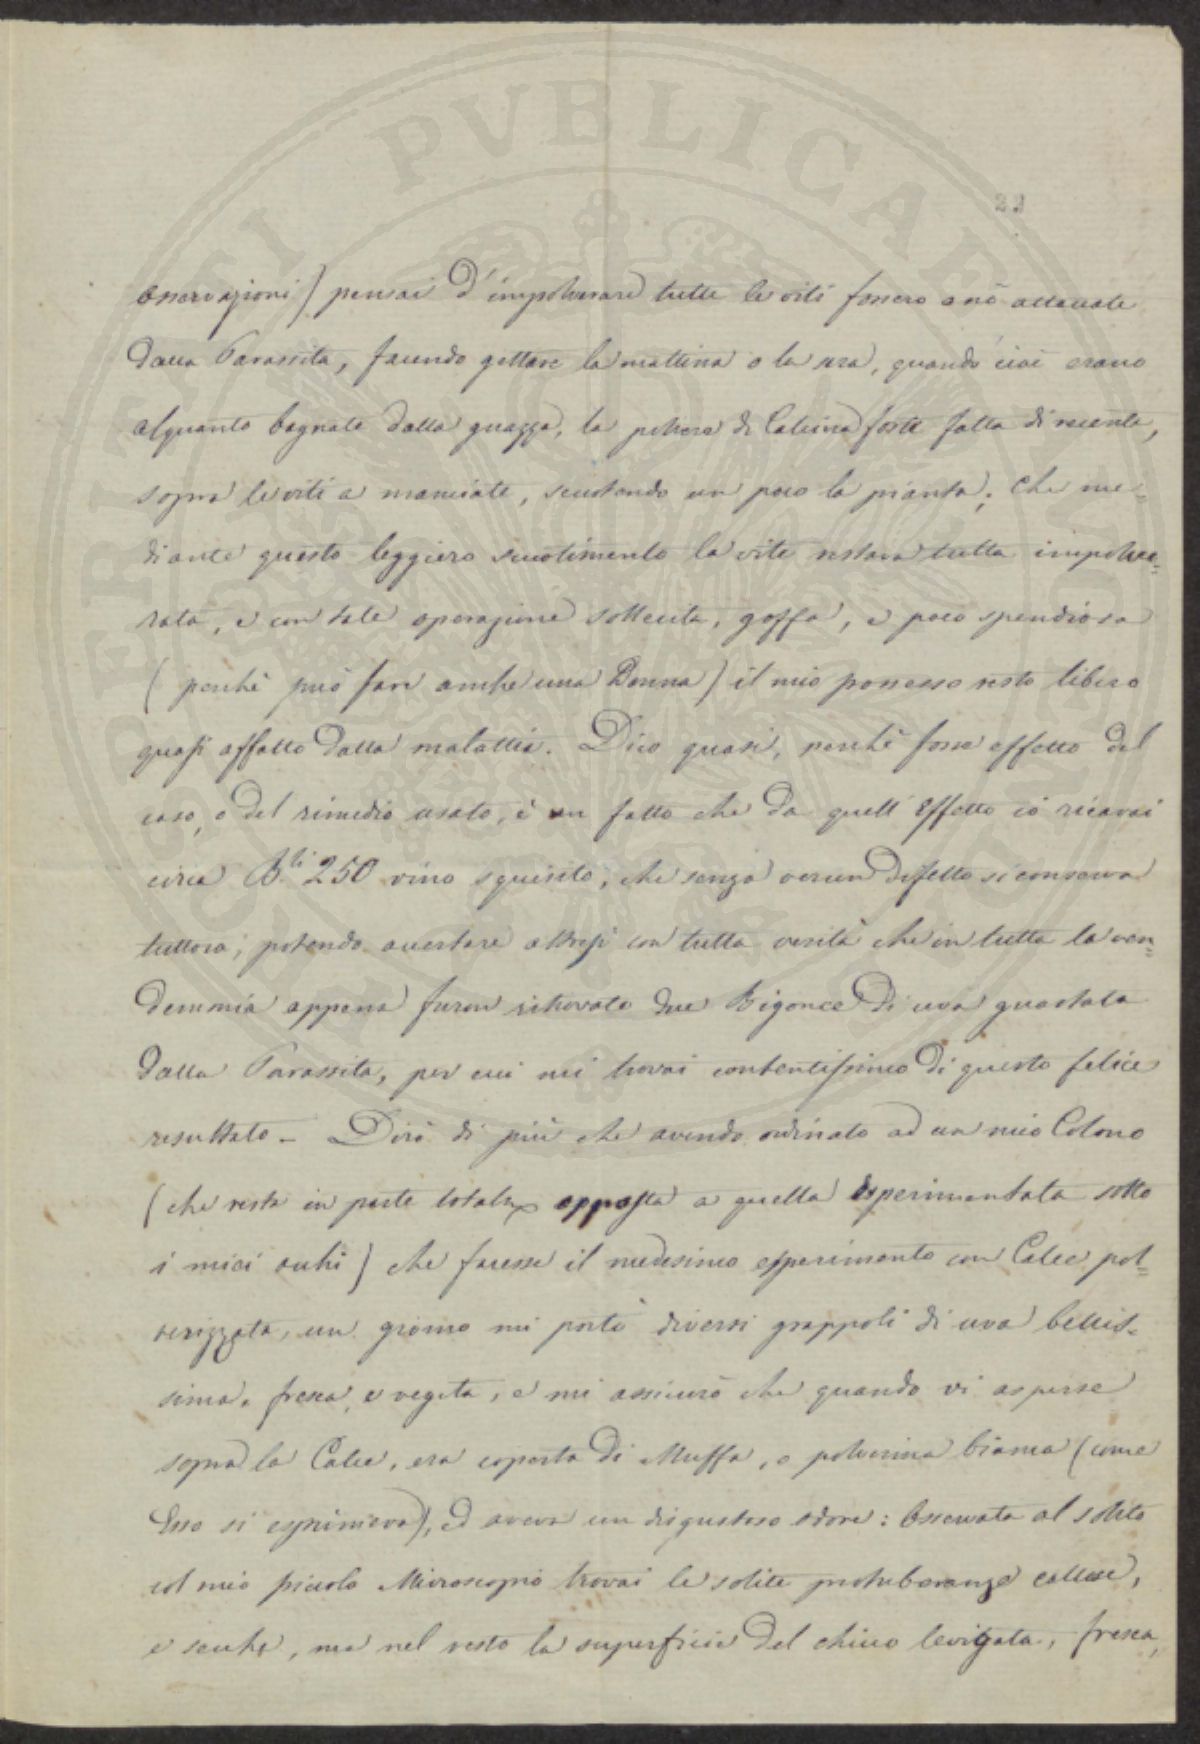 22
osservazioni) pensai d'impolverare tutte le viti fossero o nò attaccate
dalla Parassita, facendo gettare la mattina o la sera, quando cioè erano
alquanto bagnate dalla guazza, la polvere di Calcina forte fatta di recente,
sopra le viti a manciate, scuotendo un poco la pianta; che me=
diante questo leggiero scuotimento la vite restava tutta impolve=
rata, e con tale operazione sollecita, goffa, e poco spendiosa
(perchè può fare anche una Donna) il mio possesso restò libero
quasi affatto dalla malattia. Dico quasi, perchè fosse effetto del
caso, o del rimedio usato, è un fatto che da quell'Effetto io ricavai
circa B.li 250 vino squisito, che senza verun difetto si conserva
tuttora; potendo accertare altresì con tutta verità che in tutta la ven=
demmia appena furon ritrovate due Bigonce di uva guastata
dalla Parassita, per cui mi trovai contentissimo di questo felice
resultato _ Dirò di più che avendo ordinato ad un mio Colono
(che resta in parte totale opposta a quella esperimentata sotto
i miei occhi) che facesse il medesimo esperimento con Calce pol=
verizzata, un giorno mi portò diversi grappoli di uva bellis=
sima, fresca, e vegeta, e mi assicurò che quando vi asperse
sopra la Calce, era coperta di Muffa, o polverina bianca (come
Esso si esprimeva), ed aveva un disgustoso odore: Osservata al solito
col mio piccolo Microscopio trovai le solite protuberanze callose,
e secche, ma nel resto la superficie del chicco levigata, fresca,
PERITI PVBLICAE